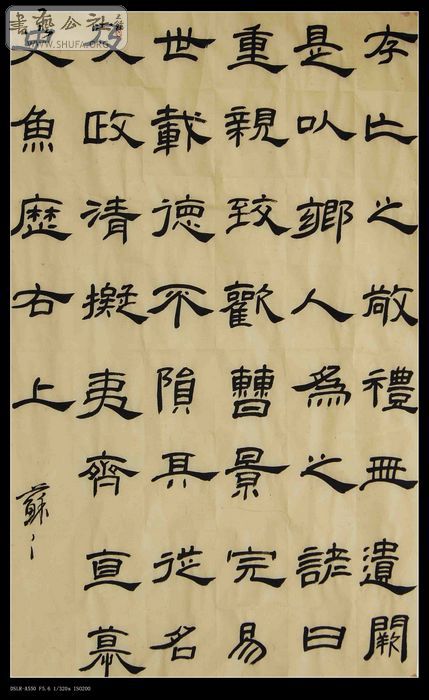 書藝公社
WWW.SHUFA.ORG
存亡之敬禮毋遺闕
是以鄉人為之諺曰
重親致歡曹景完易
世載德不隕其從名
政清擬夷齊直慕
史魚歷右上
DSLR-A550 F5.6 1/320s ISO200